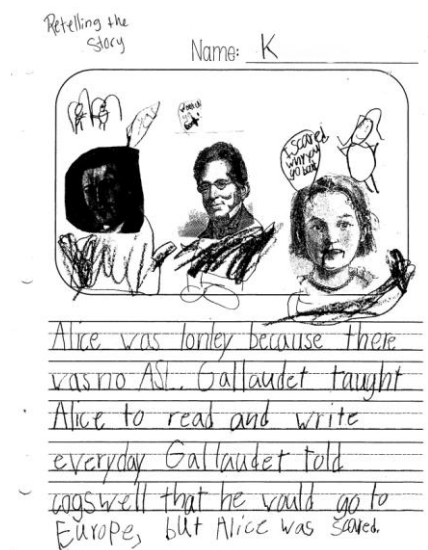 Retelling the
Story
Name: K
scared
Alice was lonley because there
was no ASL. Gallaudet taught
Alice to read and write
everyday Gallaudet told
cogswell that he would go to
Europe, but Alice was scared.